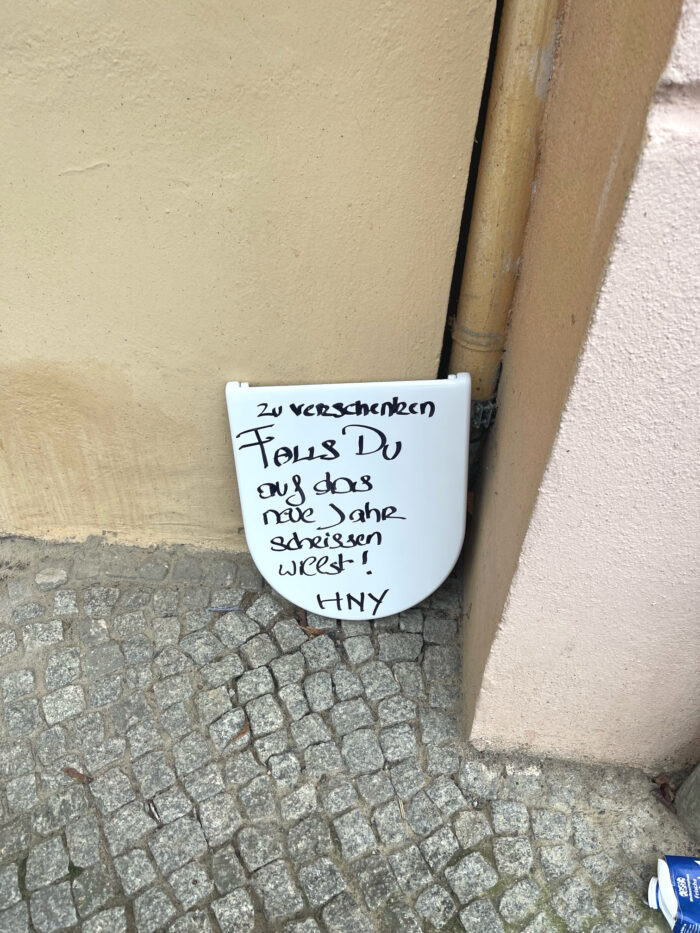 zu verschenken
FALLS DU
auf das
neue Jahr
scheissen
willst!
HNY